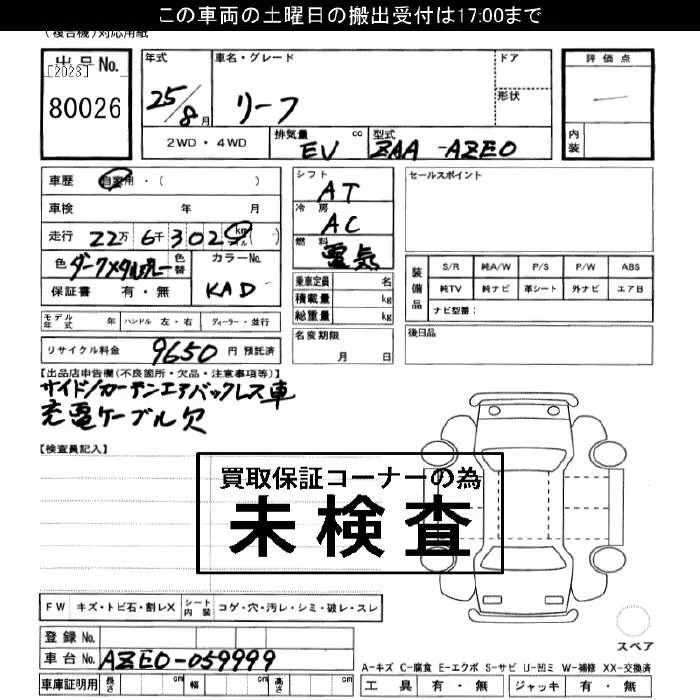 この車両の土曜日の搬出受付は17:00まで
(複合機)対応用紙
出品No. [2023] 80026
年式 25/8月
車名・グレード リーフ
ドア
形状
評価点 —
内装
2WD・4WD
排気量 cc EV
型式 ZAA-AZE0
車歴 自家用・( )
車検 年 月
走行 22万6千302 km ( )
色 ダークメタルグレー 色替
カラーNo. KAD
保証書 有・無
シフト AT
冷房 AC
燃料 電気
乗車定員 名
積載量 kg
総重量 kg
セールスポイント
装備品 S/R 純A/W P/S P/W ABS
純TV 純ナビ 革シート 外ナビ エアB
ナビ型番:
モデル年式 年 ハンドル 左・右 ディーラー・並行
名変期限 月 日
後日品
リサイクル料金 9650 円 預託済
【出品店申告欄(不良箇所・欠品・注意事項等)】
サイド/カーテンエアバックレス車
充電ケーブル欠
【検査員記入】
買取保証コーナーの為
未検査
FW キズ・トビ石・割レX シート内装 コゲ・穴・汚レ・シミ・破レ・スレ
スペア
登録No.
車台No. AZE0-059999
A-キズ C-腐食 E-エクボ S-サビ U-凹ミ W-補修 XX-交換済
車庫証明用 長さ cm 幅 cm 高さ cm
工具 有・無 ジャッキ 有・無